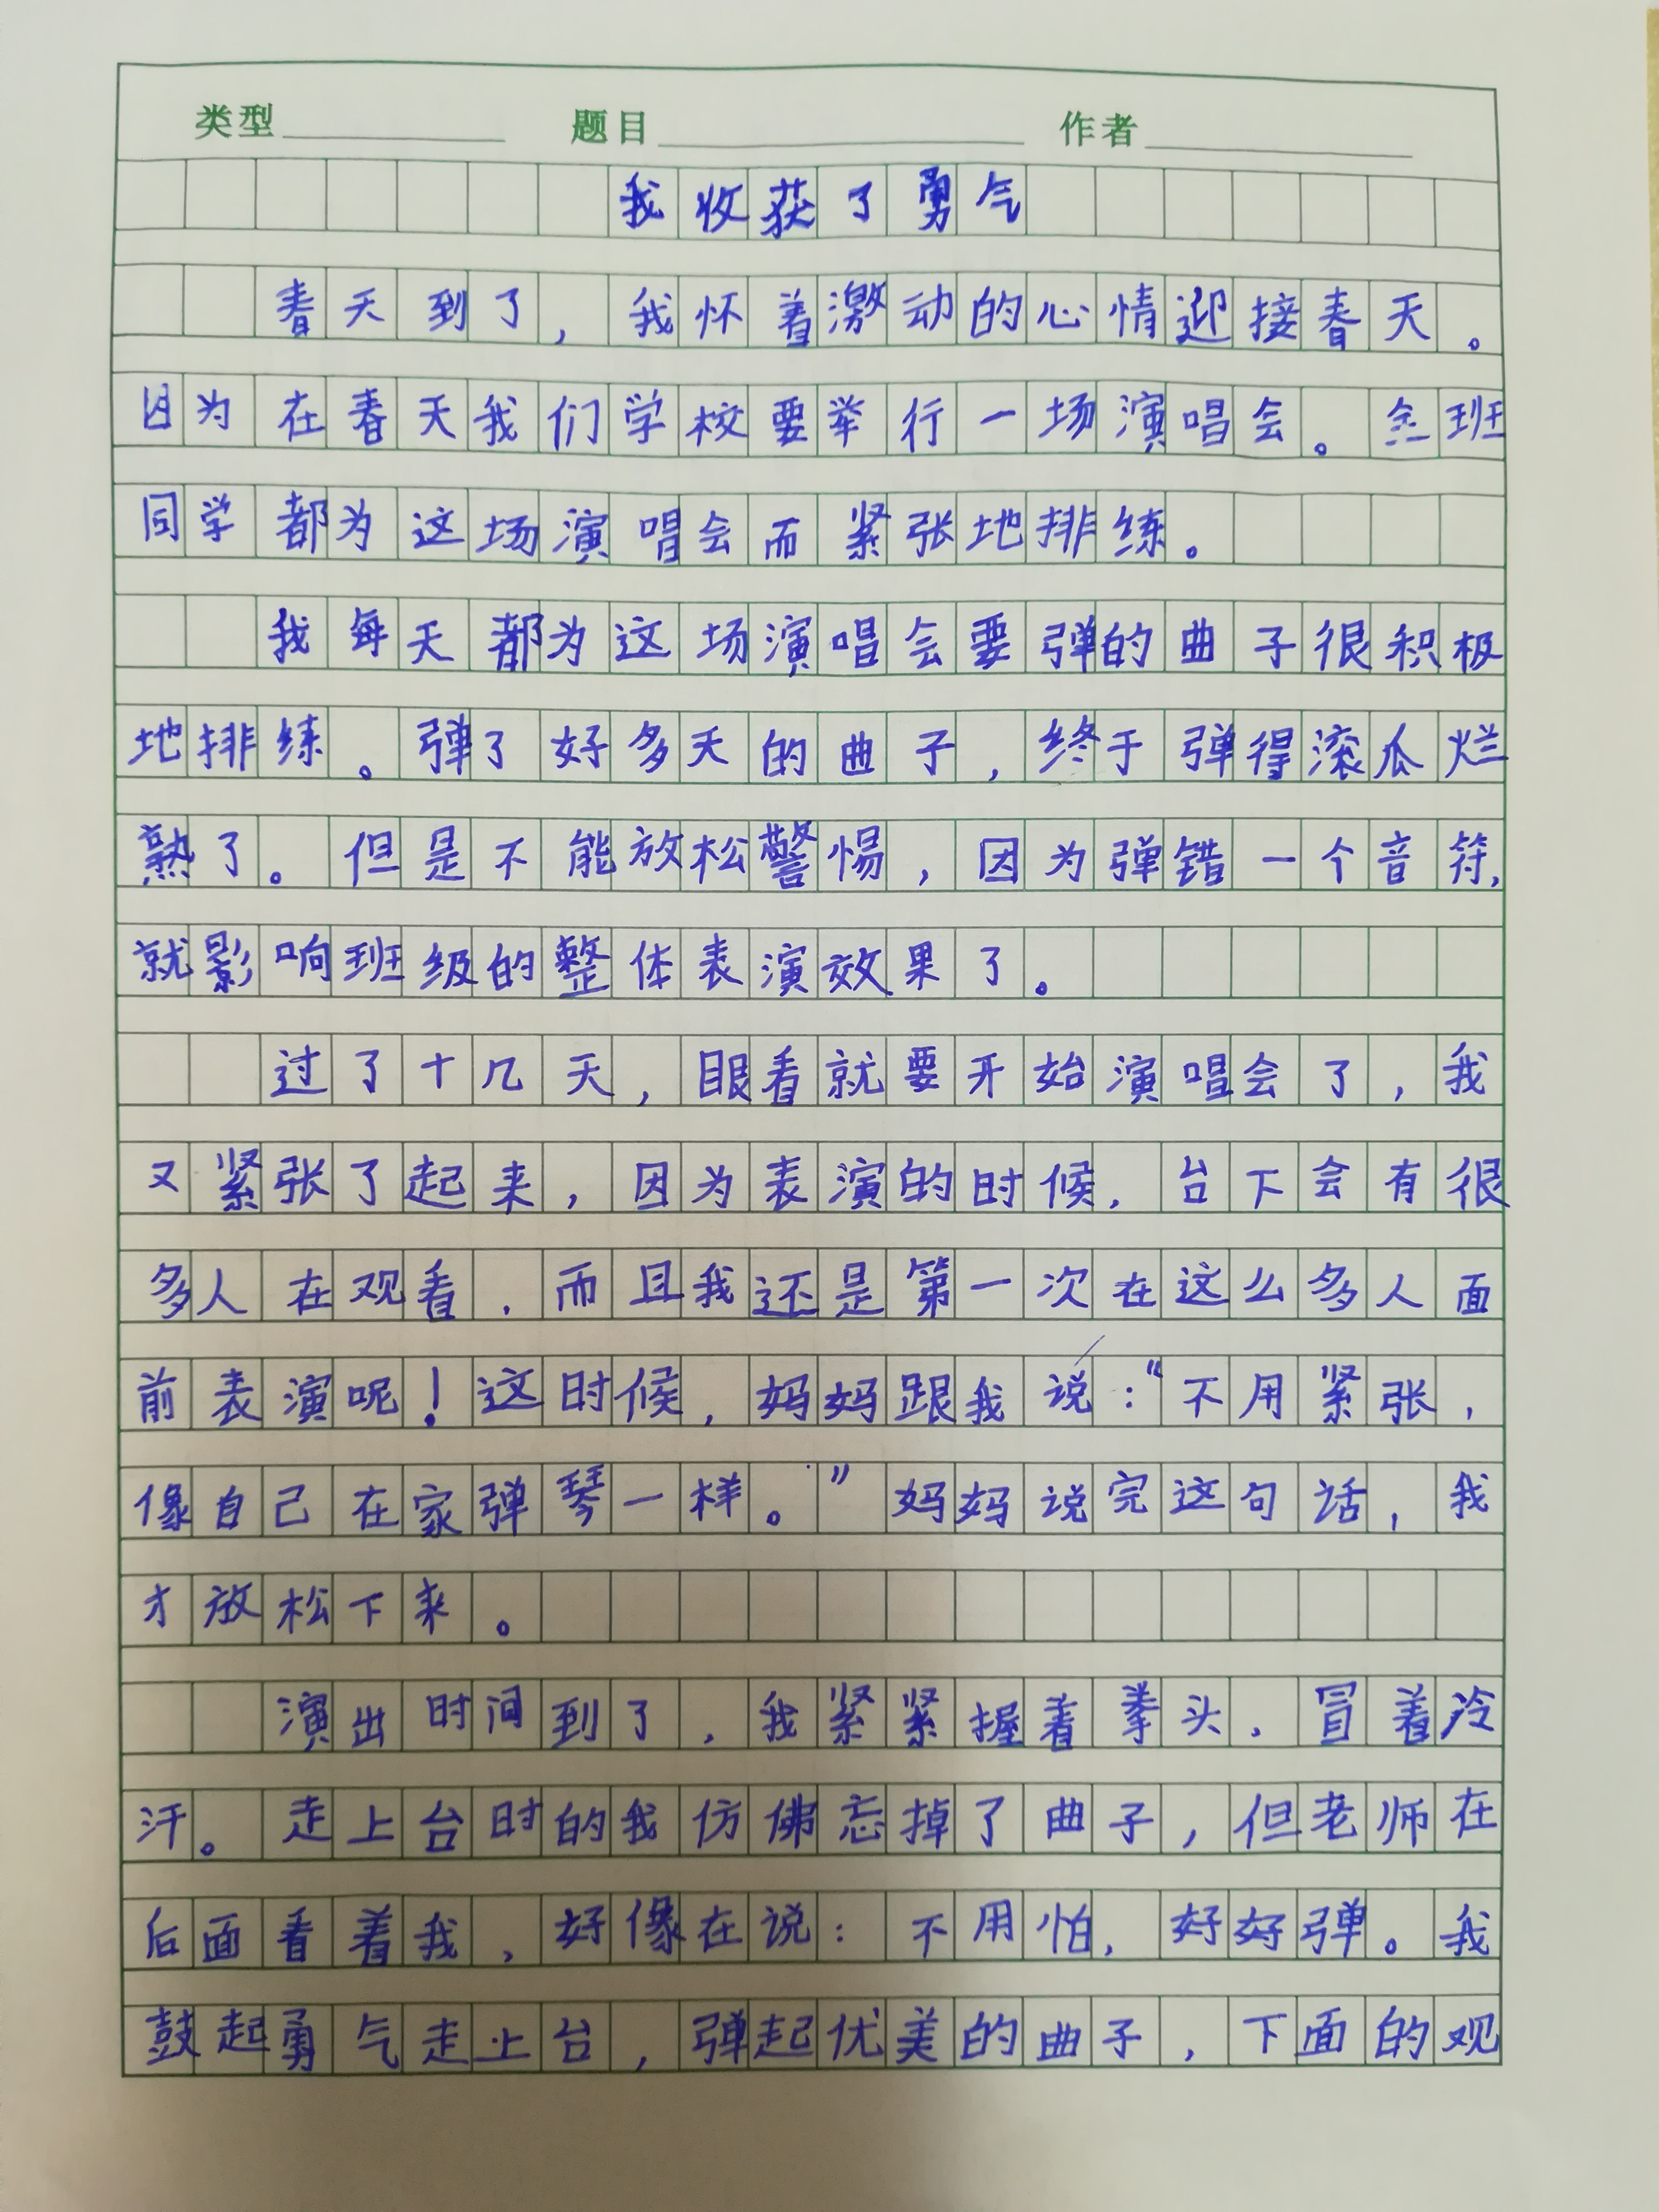 类型 题目 作者
我收获了勇气
春天到了，我怀着激动的心情迎接春天。
因为在春天我们学校要举行一场演唱会。全班
同学都为这场演唱会而紧张地排练。
我每天都为这场演唱会要弹的曲子很积极
地排练。弹了好多天的曲子，终于弹得滚瓜烂
熟了。但是不能放松警惕，因为弹错一个音符，
就影响班级的整体表演效果了。
过了十几天，眼看就要开始演唱会了，我
又紧张了起来，因为表演的时候，台下会有很
多人在观看，而且我还是第一次在这么多人面
前表演呢！这时候，妈妈跟我说：“不用紧张，
像自己在家弹琴一样。”妈妈说完这句话，我
才放松下来。
演出时间到了，我紧紧握着拳头，冒着冷
汗。走上台时的我仿佛忘掉了曲子，但老师在
后面看着我，好像在说：不用怕，好好弹。我
鼓起勇气走上台，弹起优美的曲子，下面的观